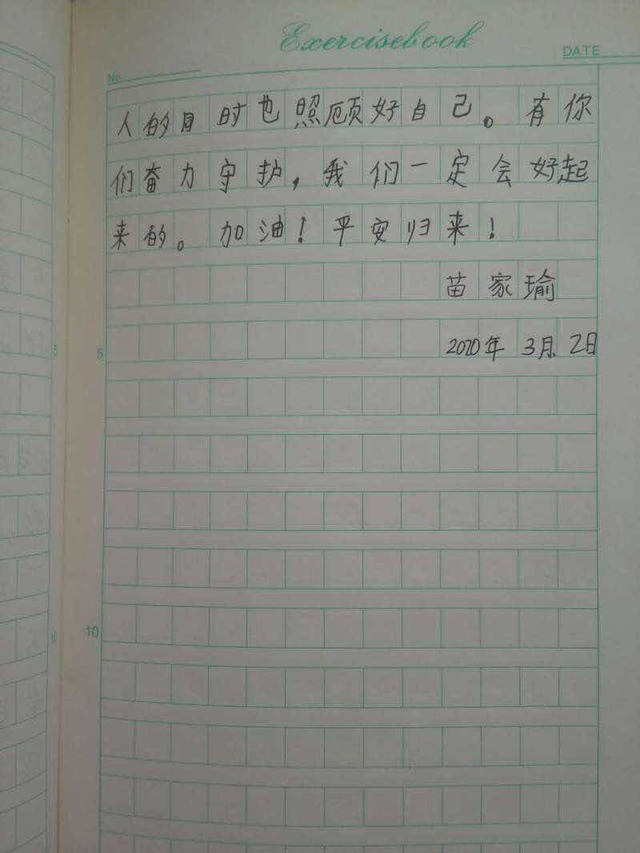 Exercisebook
No. DATE
人的目时也照顾好自己。有你
们奋力守护，我们一定会好起
来的。加油！平安归来！
苗家瑜
5 5 2020年3月2日
10 10